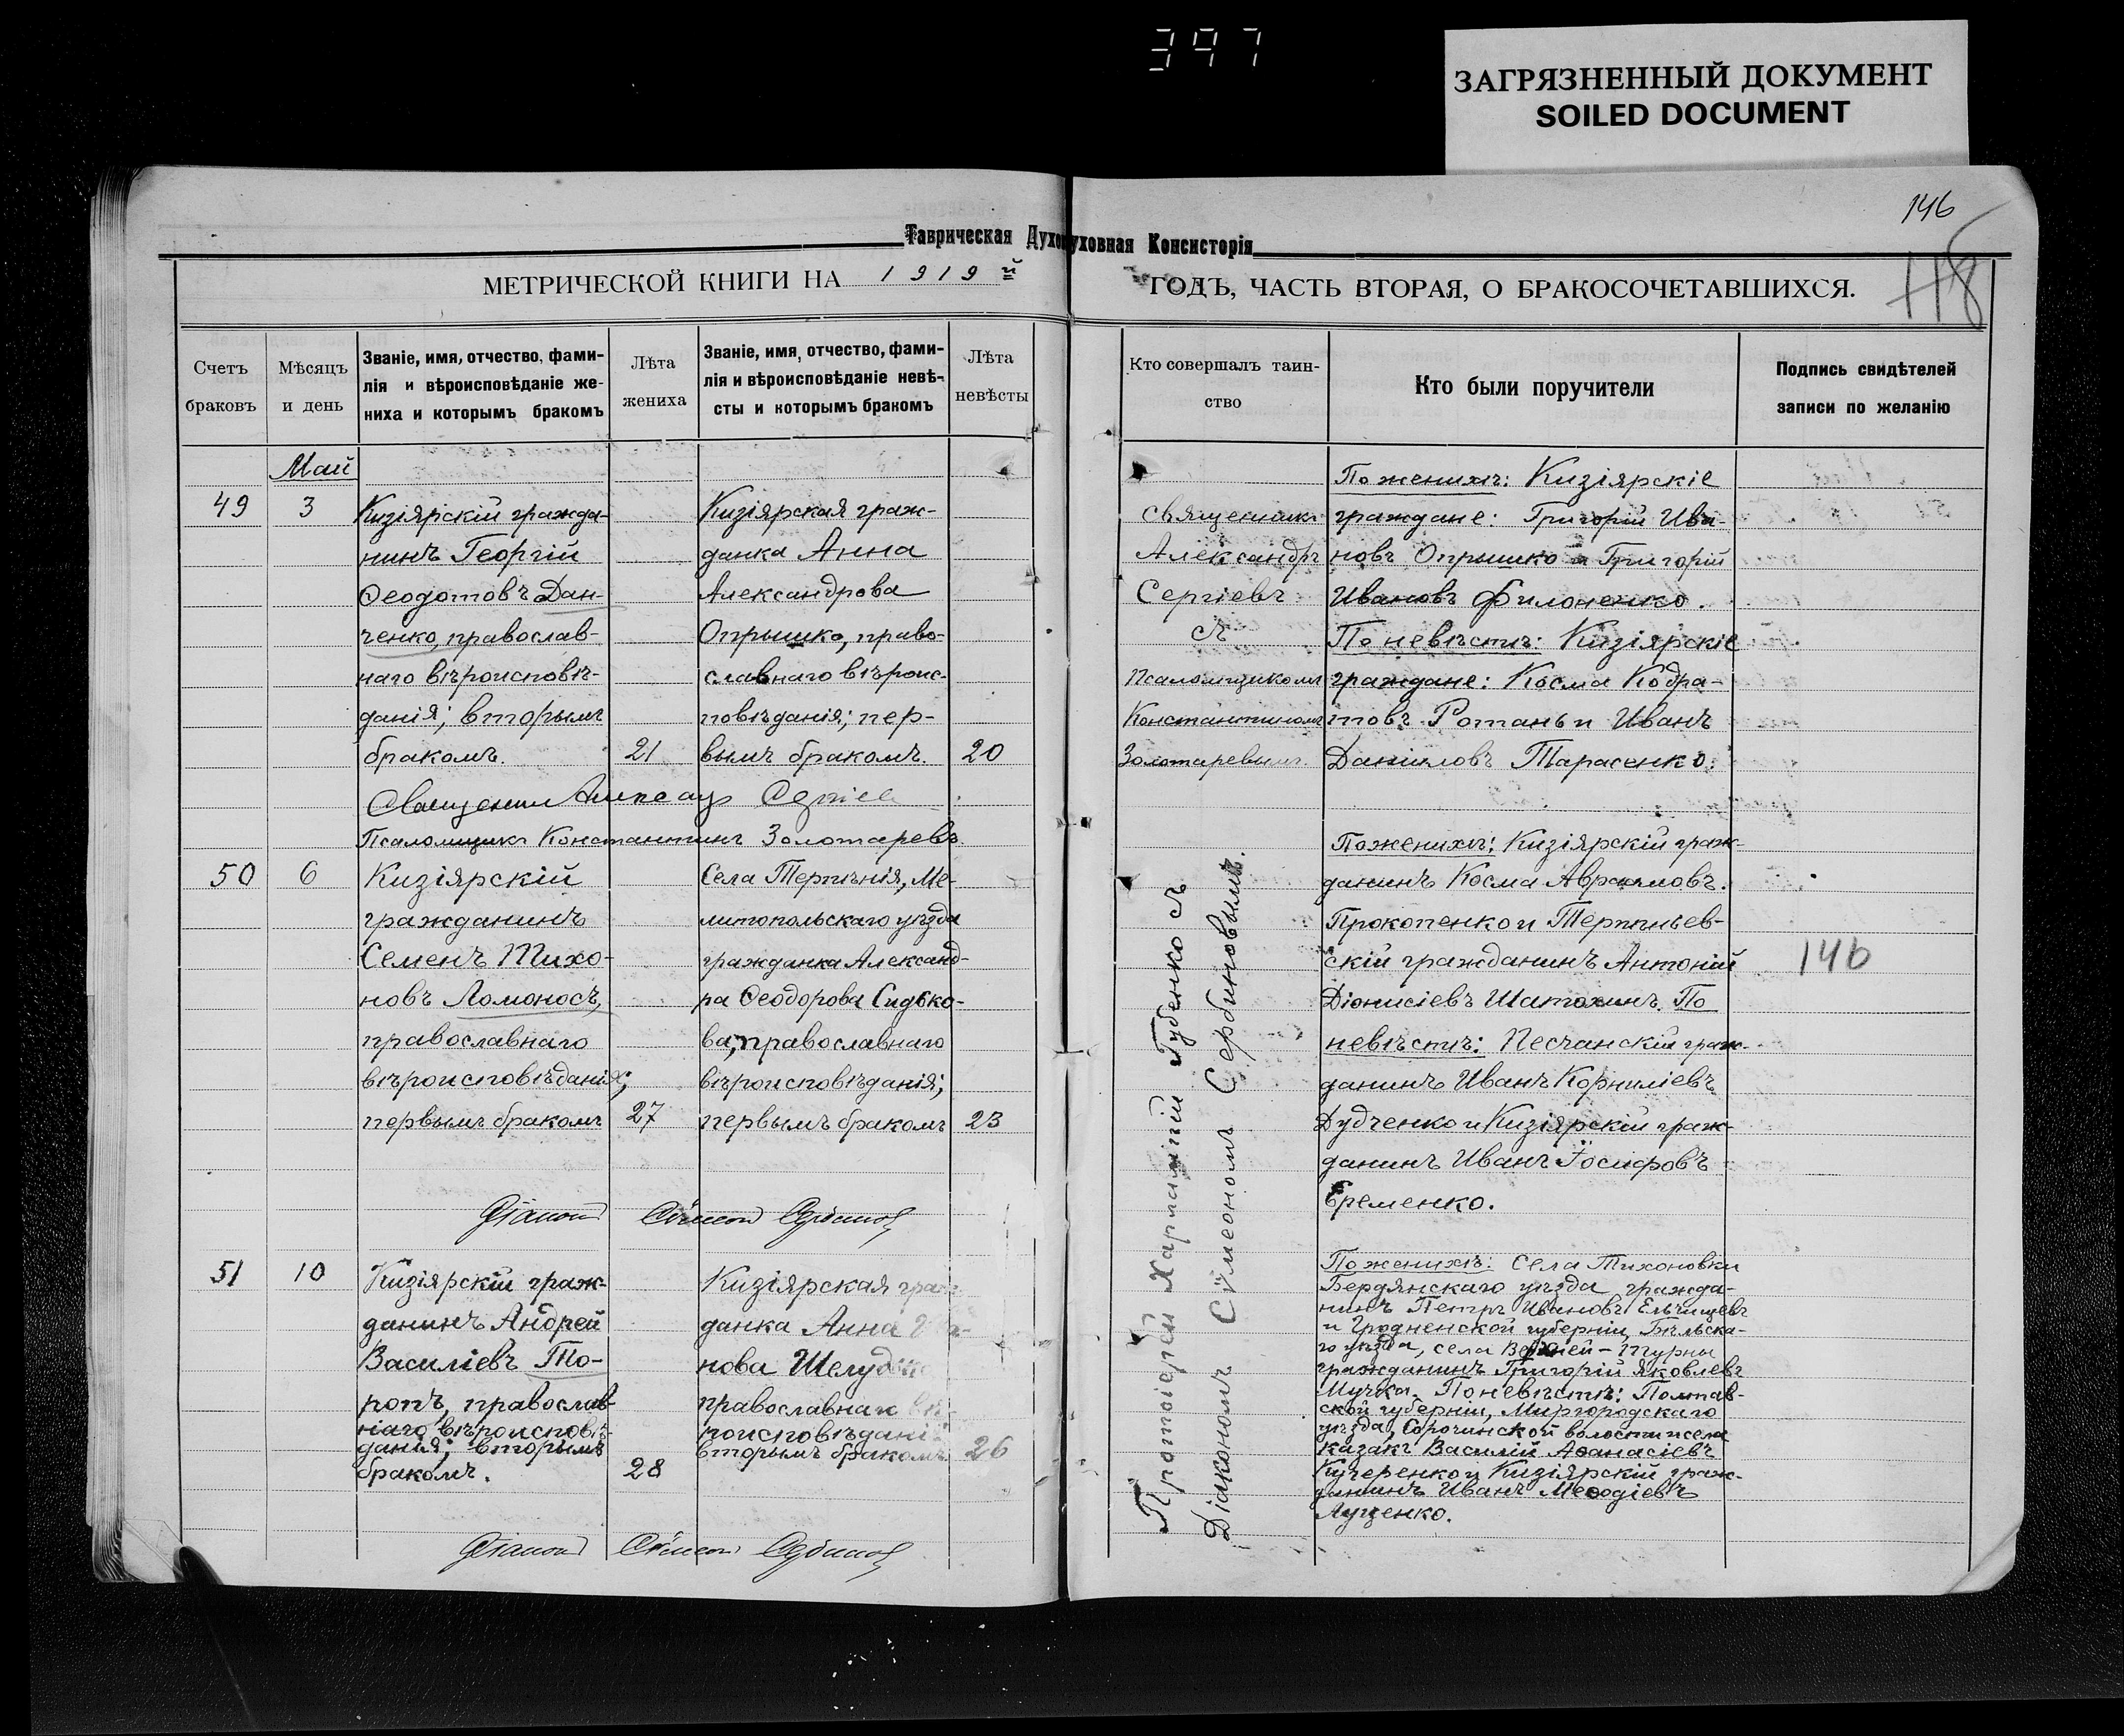 397
ЗАГРЯЗНЕННЫЙ ДОКУМЕНТ
SOILED DOCUMENT
146
118
Таврическая Духовная Консисторія
МЕТРИЧЕСКОЙ КНИГИ НА 1919й ГОДЪ, ЧАСТЬ ВТОРАЯ, О БРАКОСОЧЕТАВШИХСЯ.
Счетъ
браковъ
Мѣсяцъ
и день
Званіе, имя, отчество, фами-
лія и вѣроисповѣданіе же-
ниха и которымъ бракомъ
Лѣта
жениха
Званіе, имя, отчество, фами-
лія и вѣроисповѣданіе невѣ-
сты и которымъ бракомъ
Лѣта
невѣсты
Кто совершалъ таин-
ство
Кто были поручители
Подпись свидѣтелей
записи по желанію
Май
49
3
Кизіярскій гражда-
нинъ Георгій
Ѳеодотовъ Дан-
ченко, православ-
наго вѣроисповѣ-
данія; вторымъ
бракомъ.
21
Кизіярская граж-
данка Анна
Александрова
Опрышко, право-
славнаго вѣроис-
повѣданія; пер-
вымъ бракомъ.
20
священникъ
Александръ
Сергіевъ
съ
Псаломщикомъ
Константиномъ
Золотаревымъ.
По женихѣ: Кизіярскіе
граждане: Григорій Ива-
новъ Опрышко и Григорій
Ивановъ Филоненко.
По невѣстѣ: Кизіярскіе
граждане: Косма Кодра-
товъ Ротань и Иванъ
Даниловъ Тарасенко.
Священникъ Александръ Сергіевъ
Псаломщикъ Константинъ Золотаревъ.
50
6
Кизіярскій
гражданинъ
Семенъ Тихо-
новъ Ломоносъ,
православнаго
вѣроисповѣданія;
первымъ бракомъ
27
Села Терпѣнія, Ме-
литопольскаго уѣзда
гражданка Александ-
ра Ѳеодорова Сидько-
ва, православнаго
вѣроисповѣданія;
первымъ бракомъ
23
Протоіерей Харлампій Губенко съ
Діакономъ Сѵмеономъ Сербиновымъ.
По женихѣ: Кизіярскій граж-
данинъ Косма Аврамовъ
Прокопенко и Терпѣньев-
скій гражданинъ Антоній
Діонисіевъ Шатохинъ. По
невѣстѣ: Песчанскій граж-
данинъ Иванъ Корниліевъ
Дудченко и Кизіярскій граж-
данинъ Иванъ Іосифовъ
Еременко.
146
Діаконъ Сѵмеонъ Сербиновъ
51
10
Кизіярскій граж-
данинъ Андрей
Василіевъ То-
ропъ, православ-
наго вѣроисповѣ-
данія; вторымъ
бракомъ.
28
Кизіярская граж
данка Анна Ива-
нова Шелудко
православнаго вѣ-
роисповѣданія
вторымъ бракомъ
26
По женихѣ: Села Тихоновки
Бердянскаго уѣзда гражда-
нинъ Петръ Ивановъ Ельчищевъ
и Гродненской губерніи, Бѣльска-
го уѣзда, села Верхней-Турны
гражданинъ Григорій Яковлевъ
Мучка. По невѣстѣ: Полтав-
ской губерніи, Миргородскаго
уѣзда, Сорочинской волости и села
казакъ Василій Аѳанасіевъ
Кучеренко и Кизіярскій граж-
данинъ Иванъ Меѳодіевъ
Луценко.
Діаконъ Сѵмеонъ Сербиновъ